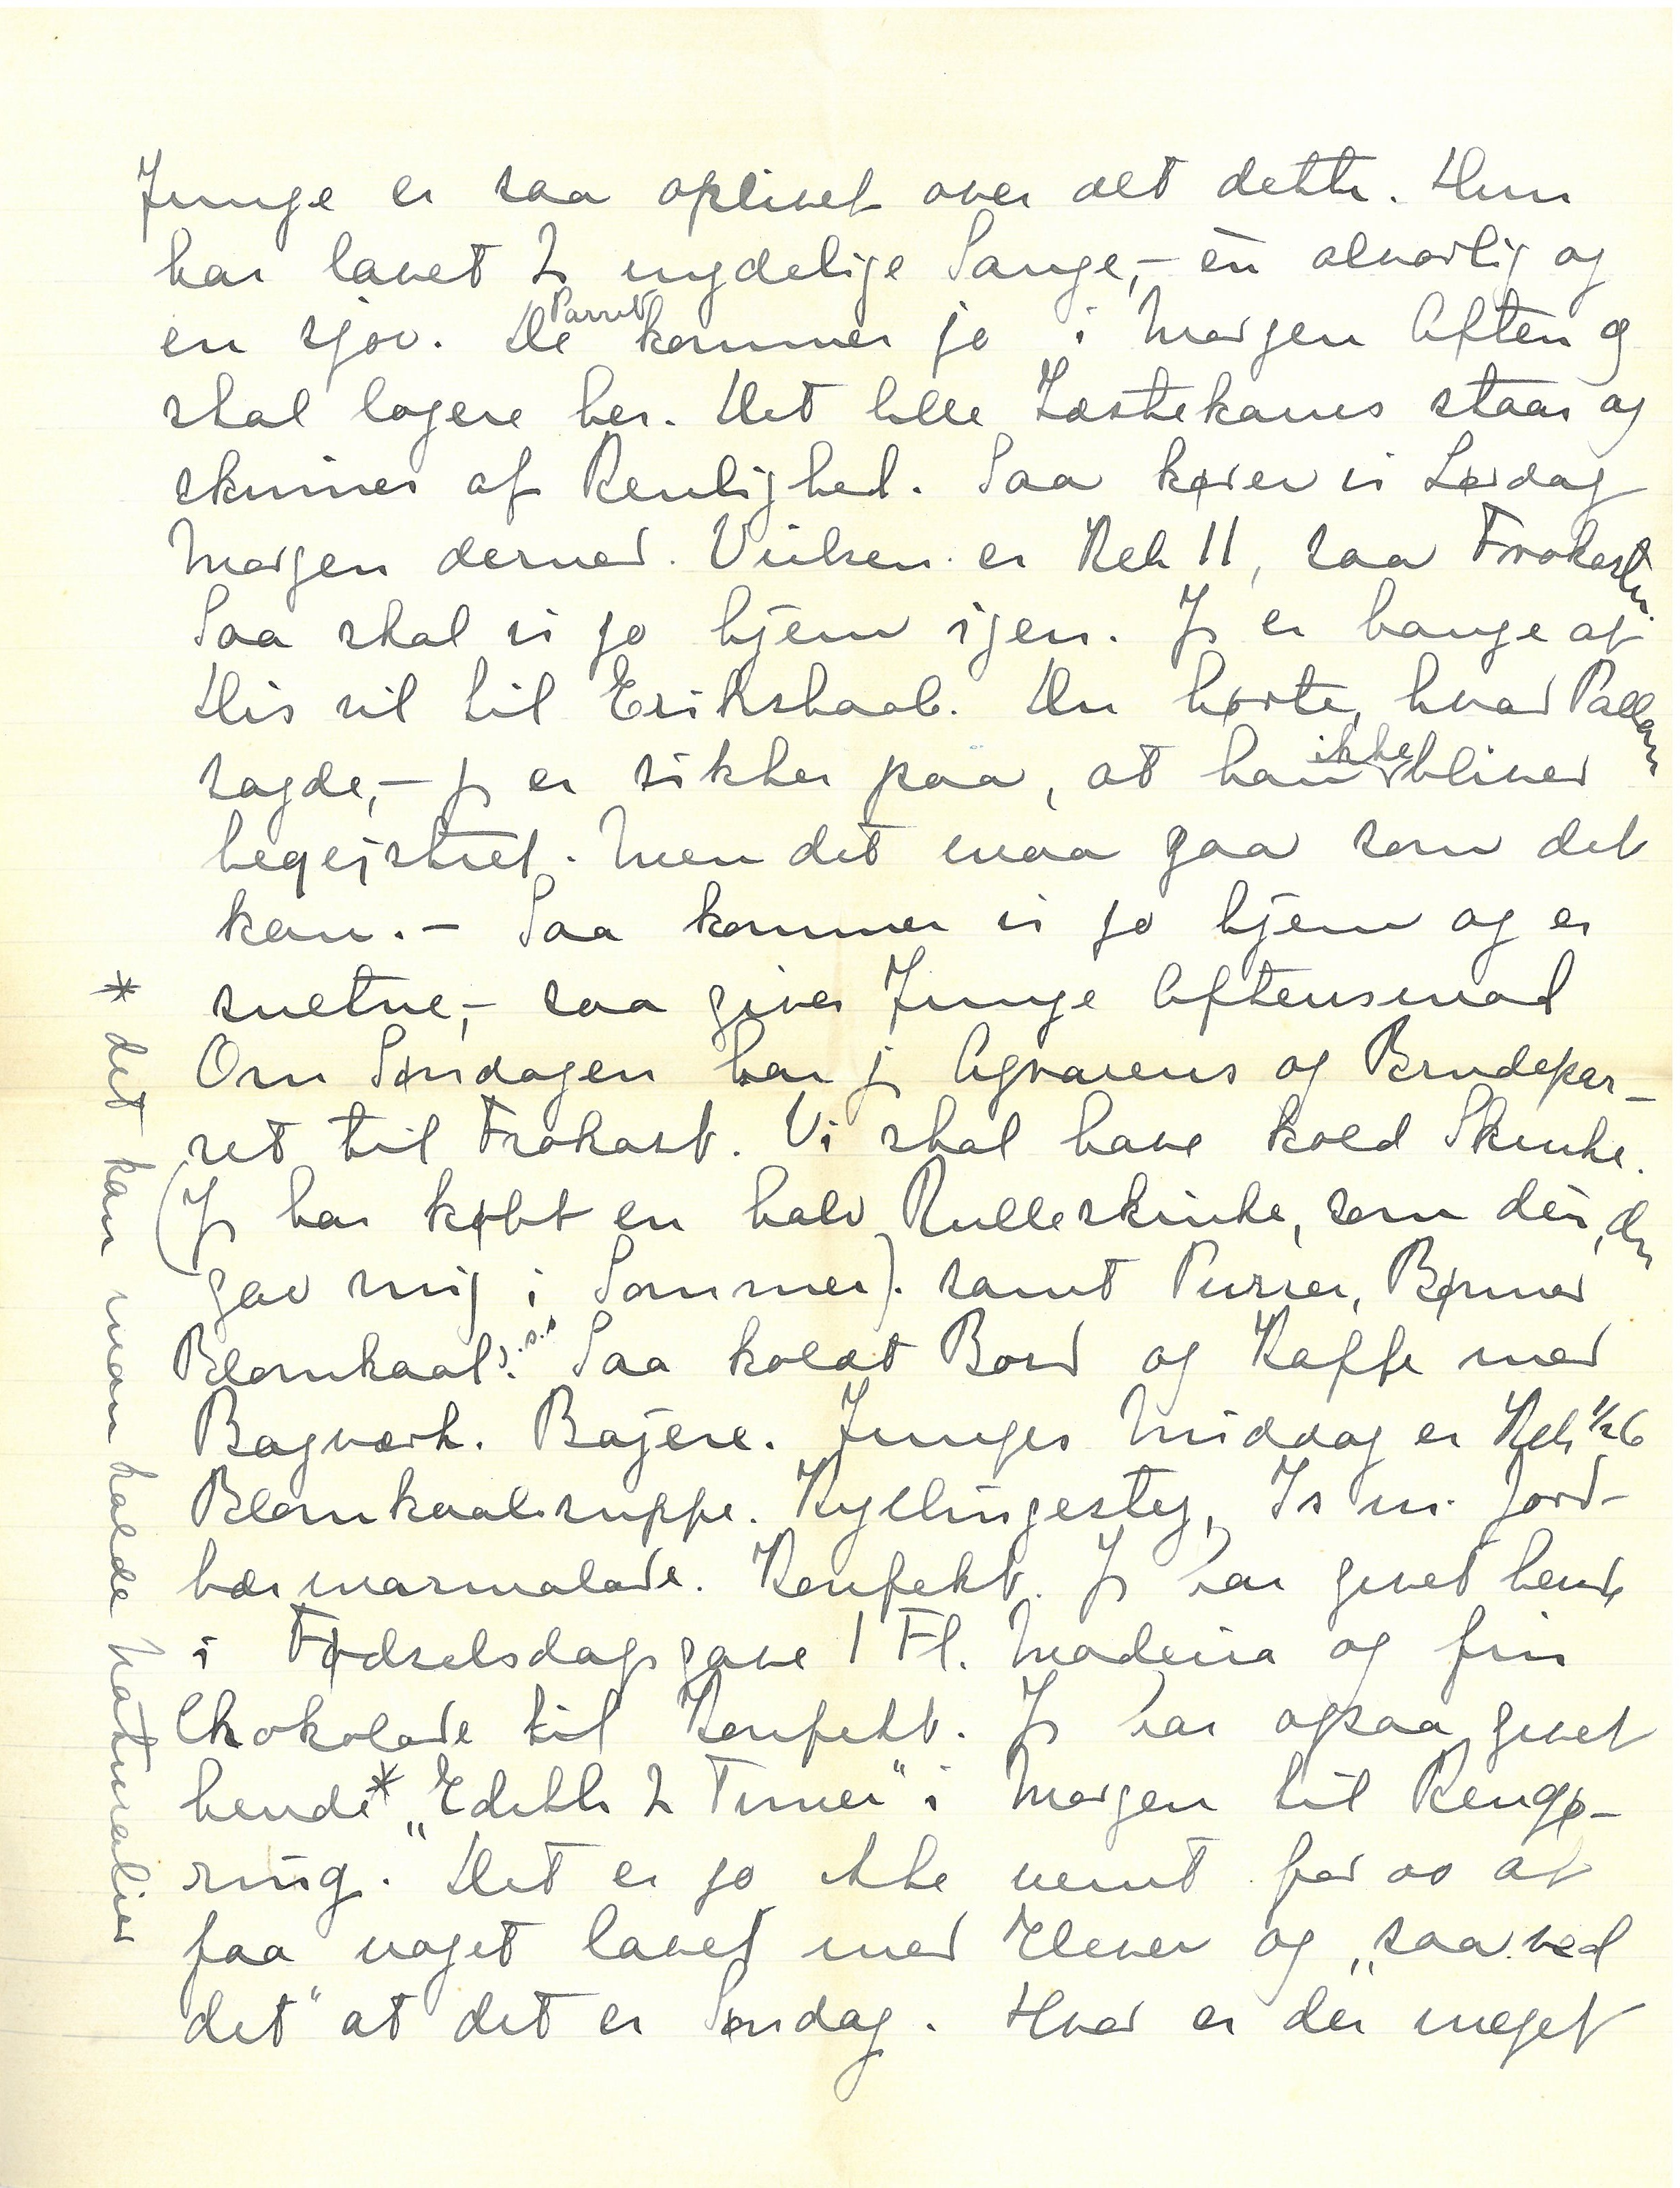 Junge er saa oplivet over alt dette. Hun
har lavet 2 nydelige Sange,- èn alvorlig og
en sjov. De Parret kommer jo i Morgen Aften og
skal logere her. Det lille Gæstekams staar og
skinner af Renlighed. Saa kører vi Lørdag
Morgen derned. Vielsen er Kl. 11, saa Frokosten.
Saa skal vi jo hjem igen. Jeg er bange at
Dis vil til Erikshaab. Du hørte, hvad Pallam
sagde,- jeg er sikker paa, at han ikke bliver
begejstret. Men det maa gaa som det
kan.- Saa kommer vi jo hjem og er
sultne,- saa giver Junge Aftensmad
Om Søndagen har jeg Agrarens og Brudepar-
ret til Frokost. Vi skal have kold Skinke.
(Jeg har købt en halv Rulleskinke, som den, du
gav mig i Sommer). samt Purrer, Bønner
Blomkaal o.s.v. Saa koldt Bord og Kaffe med
Bagværk. Bajere. Junges Middag er Kl. ½6
Blomkaalssuppe. Kyllingesteg, Is m. Jord-
bærmarmalade. Konfekt. Jeg har givet hende
i Fødselsdagsgave 1 Fl. Madeira og fin
Chokolade til Konfekt. Jeg har ogsaa givet
hende* „Edith 2 Timer" i Morgen til Rengø-
ring. Det er jo ikke nemt for os at
faa noget lavet med Elever og „saa ved
det" at det er Søndag. Hvor er der meget
* det kan man kalde Naturalier